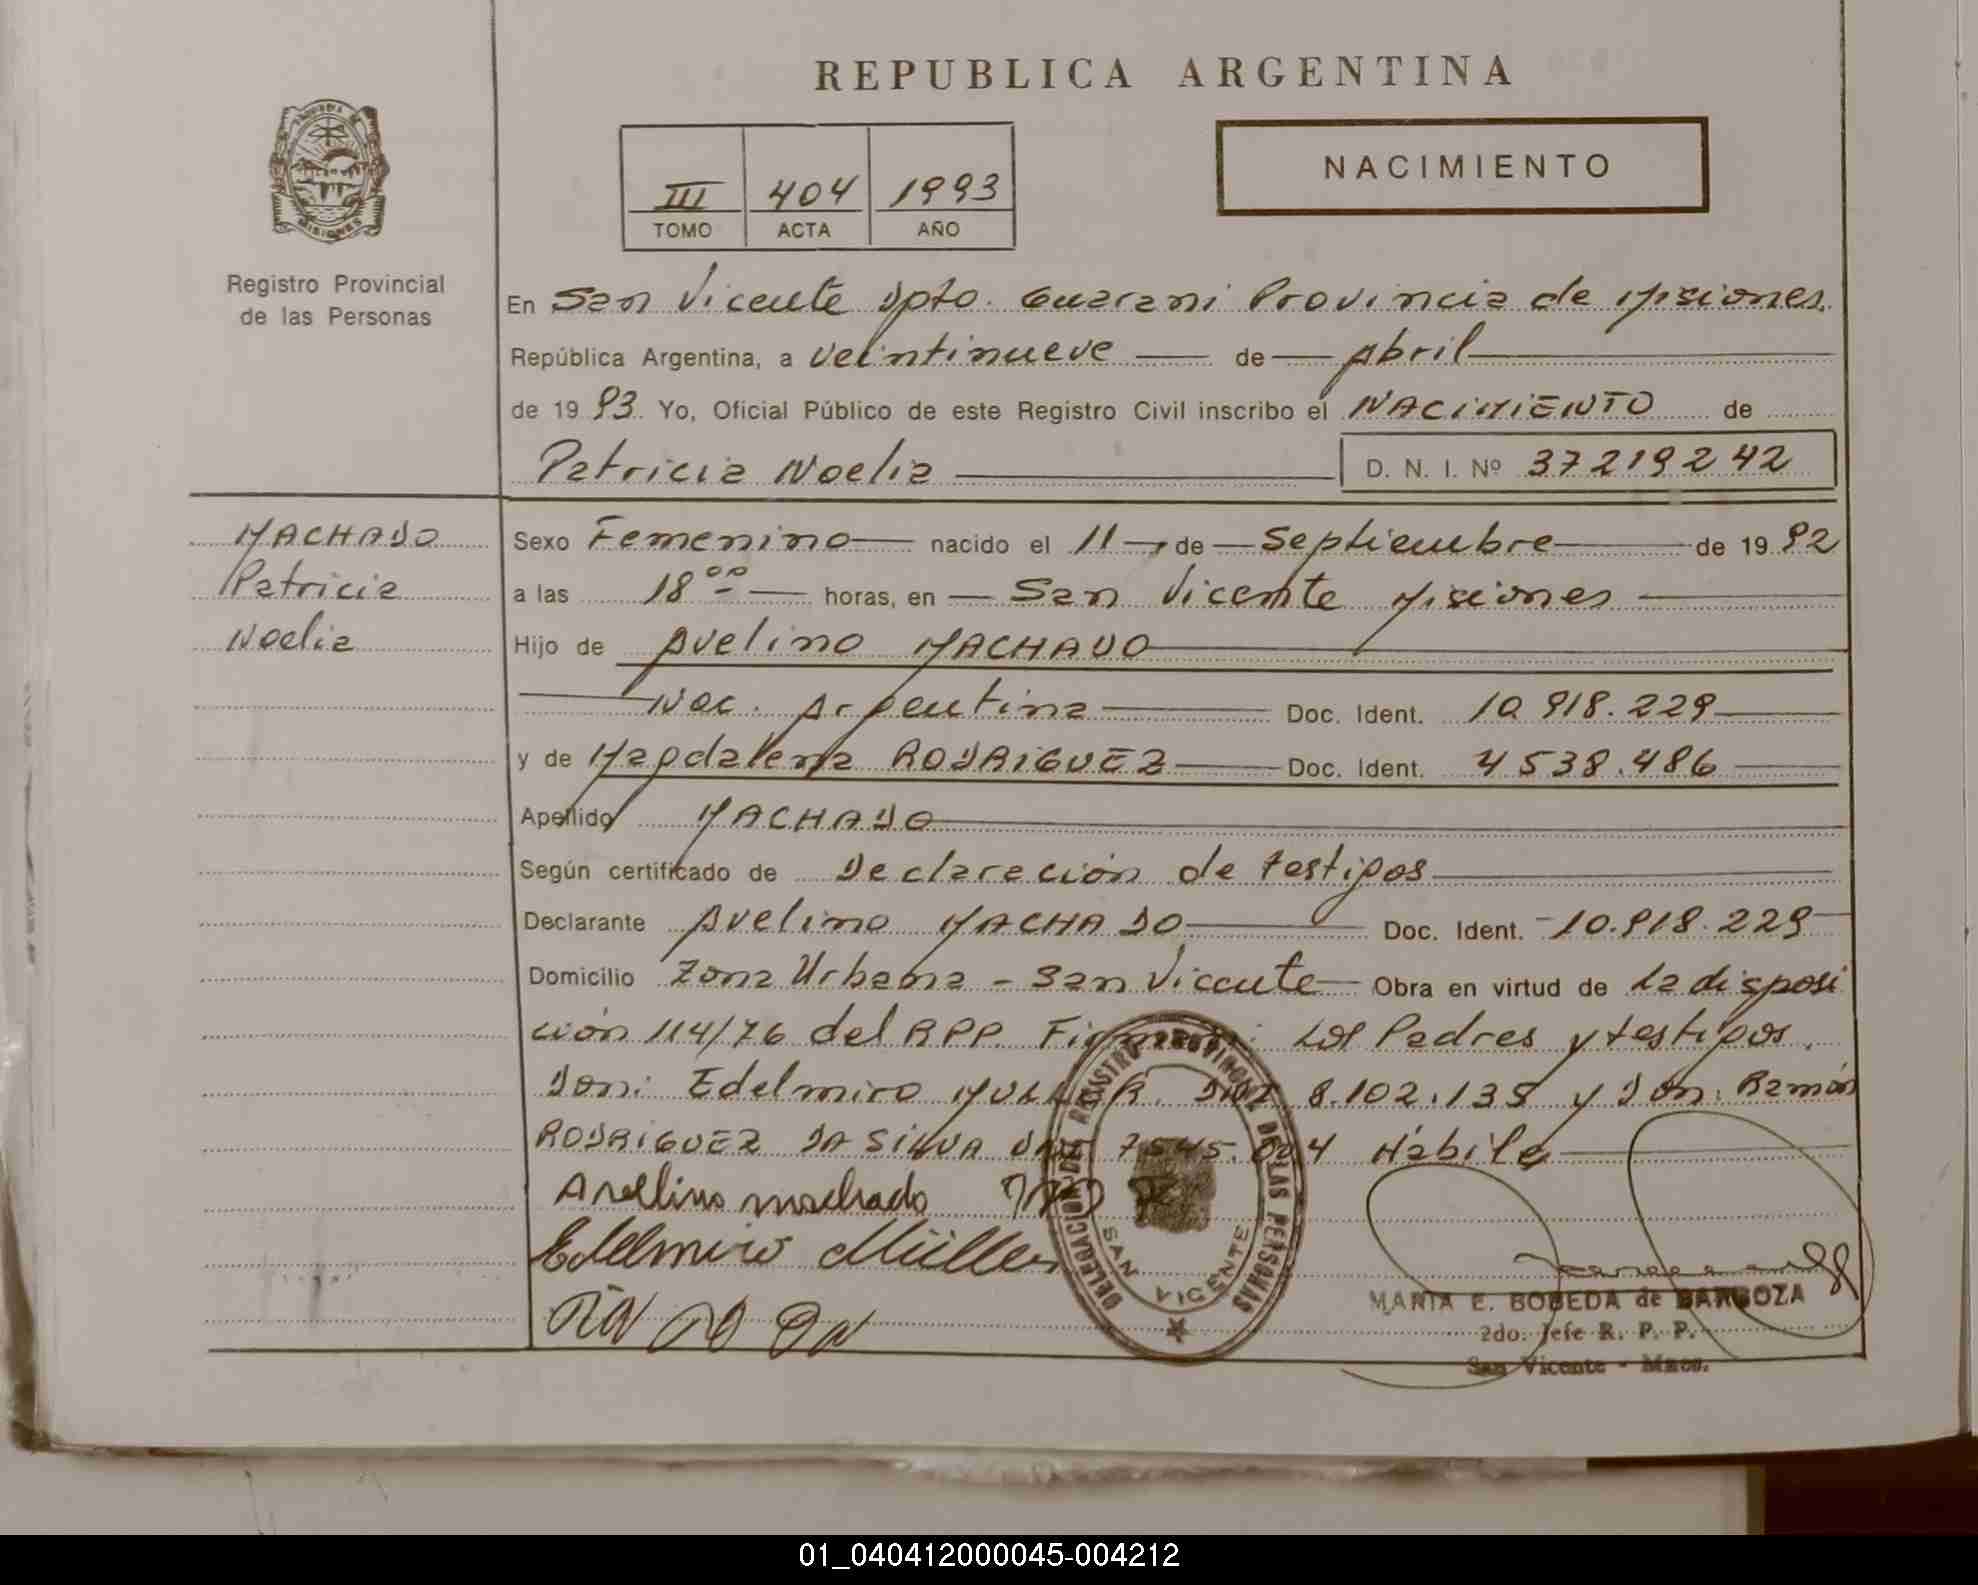 REPUBLICA ARGENTINA
NACIMIENTO
III 404 1993
TOMO ACTA AÑO
MISIONES
Registro Provincial
de las Personas
En San Vicente Dpto. Guarani Provincia de Misiones.
República Argentina, a veintinueve de Abril
de 1993. Yo, Oficial Público de este Registro Civil inscribo el NACIMIENTO de
Patricia Noelia D. N. I. Nº 37219242
MACHADO
Patricia
Noelia
Sexo Femenino nacido el 11 de Septiembre de 1992
a las 18 00 horas, en San Vicente Misiones
Hijo de Avelino MACHADO
Nac. Argentina Doc. Ident. 10 918.229
y de Magdalena RODRIGUEZ Doc. Ident. 4538.486
Apellido MACHADO
Según certificado de Declaración de testigos
Declarante Avelino MACHADO Doc. Ident. 10.918.229
Domicilio Zona Urbana - San Vicente Obra en virtud de la disposi
ción 114/76 del RPP. Firman: Los Padres y testigos.
Don: Edelmiro MULLER. DNI 8.102.135 y Don: Ramón
RODRIGUEZ DA SILVA DNI Hábile
Avellino machado
Edelmiro Müller
DELEGACION DEL REGISTRO PROVINCIAL DE LAS PERSONAS
SAN VICENTE
MARIA E. BOBEDA de BARBOZA
2do. Jefe R. P. P.
San Vicente - Mnes.
01_040412000045-004212